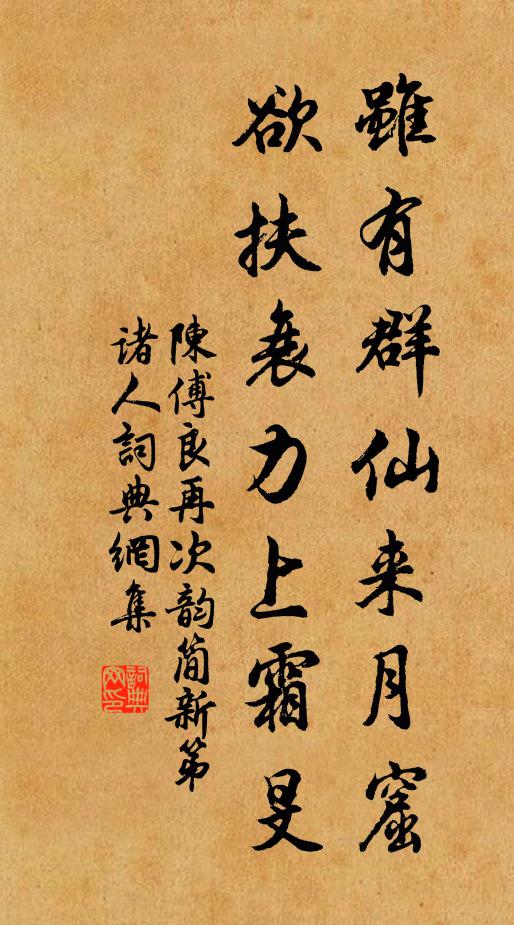 雖有群仙来月窟
欲扶衰力上霜旻
陳傅良再次韵简新第
诸人詞典網集
詞典网印